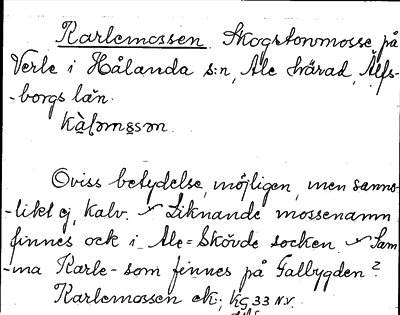 Karlemossen. Skogstormosse på
Verle i Hålanda s:n, Ale härad, Älfs-
-borgs län.
kàɭəms̥səm
Oviss betydelse, möjligen, men sanno-
-likt ej, kalv. Liknande mossenamn
finnes ock i Ale=Skövde socken. Sam-
-ma Karle- som finnes på Falbygden?
Karlemossen ek; KG 33 N.V.